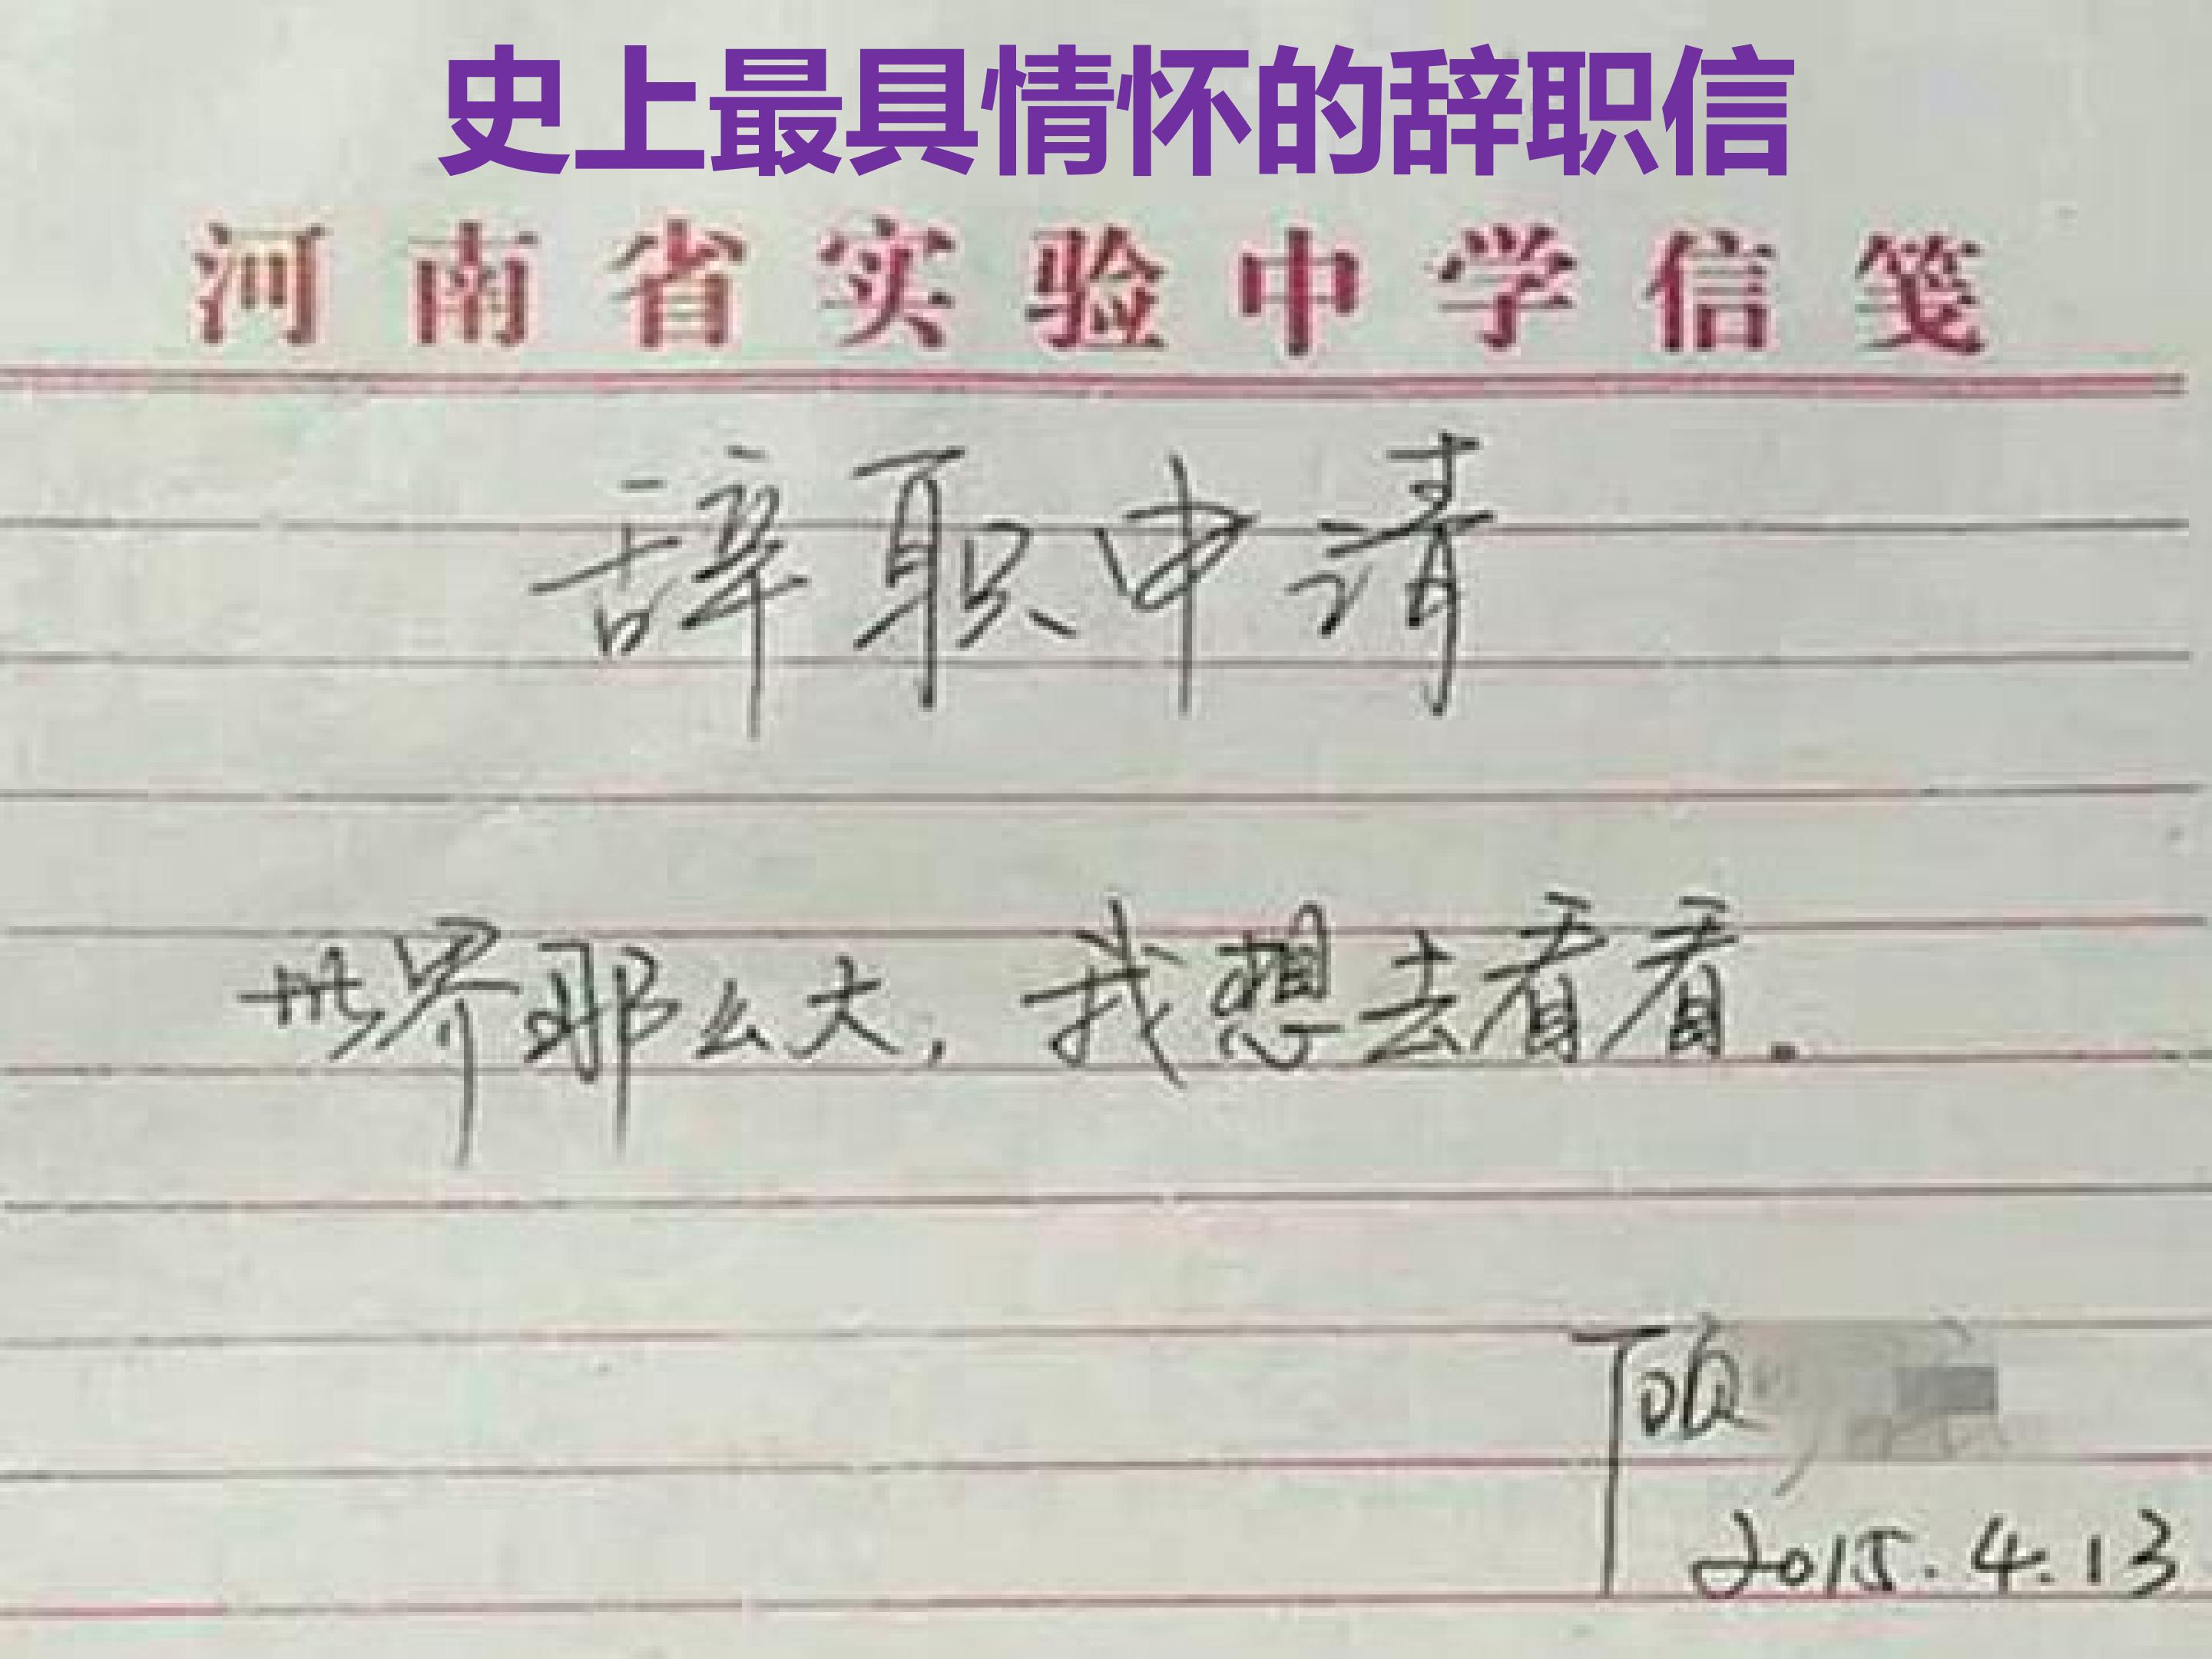 史上最具情怀的辞职信
河南省实验中学信笺
辞职申请
世界那么大，我想去看看.
顾
2015.4.13